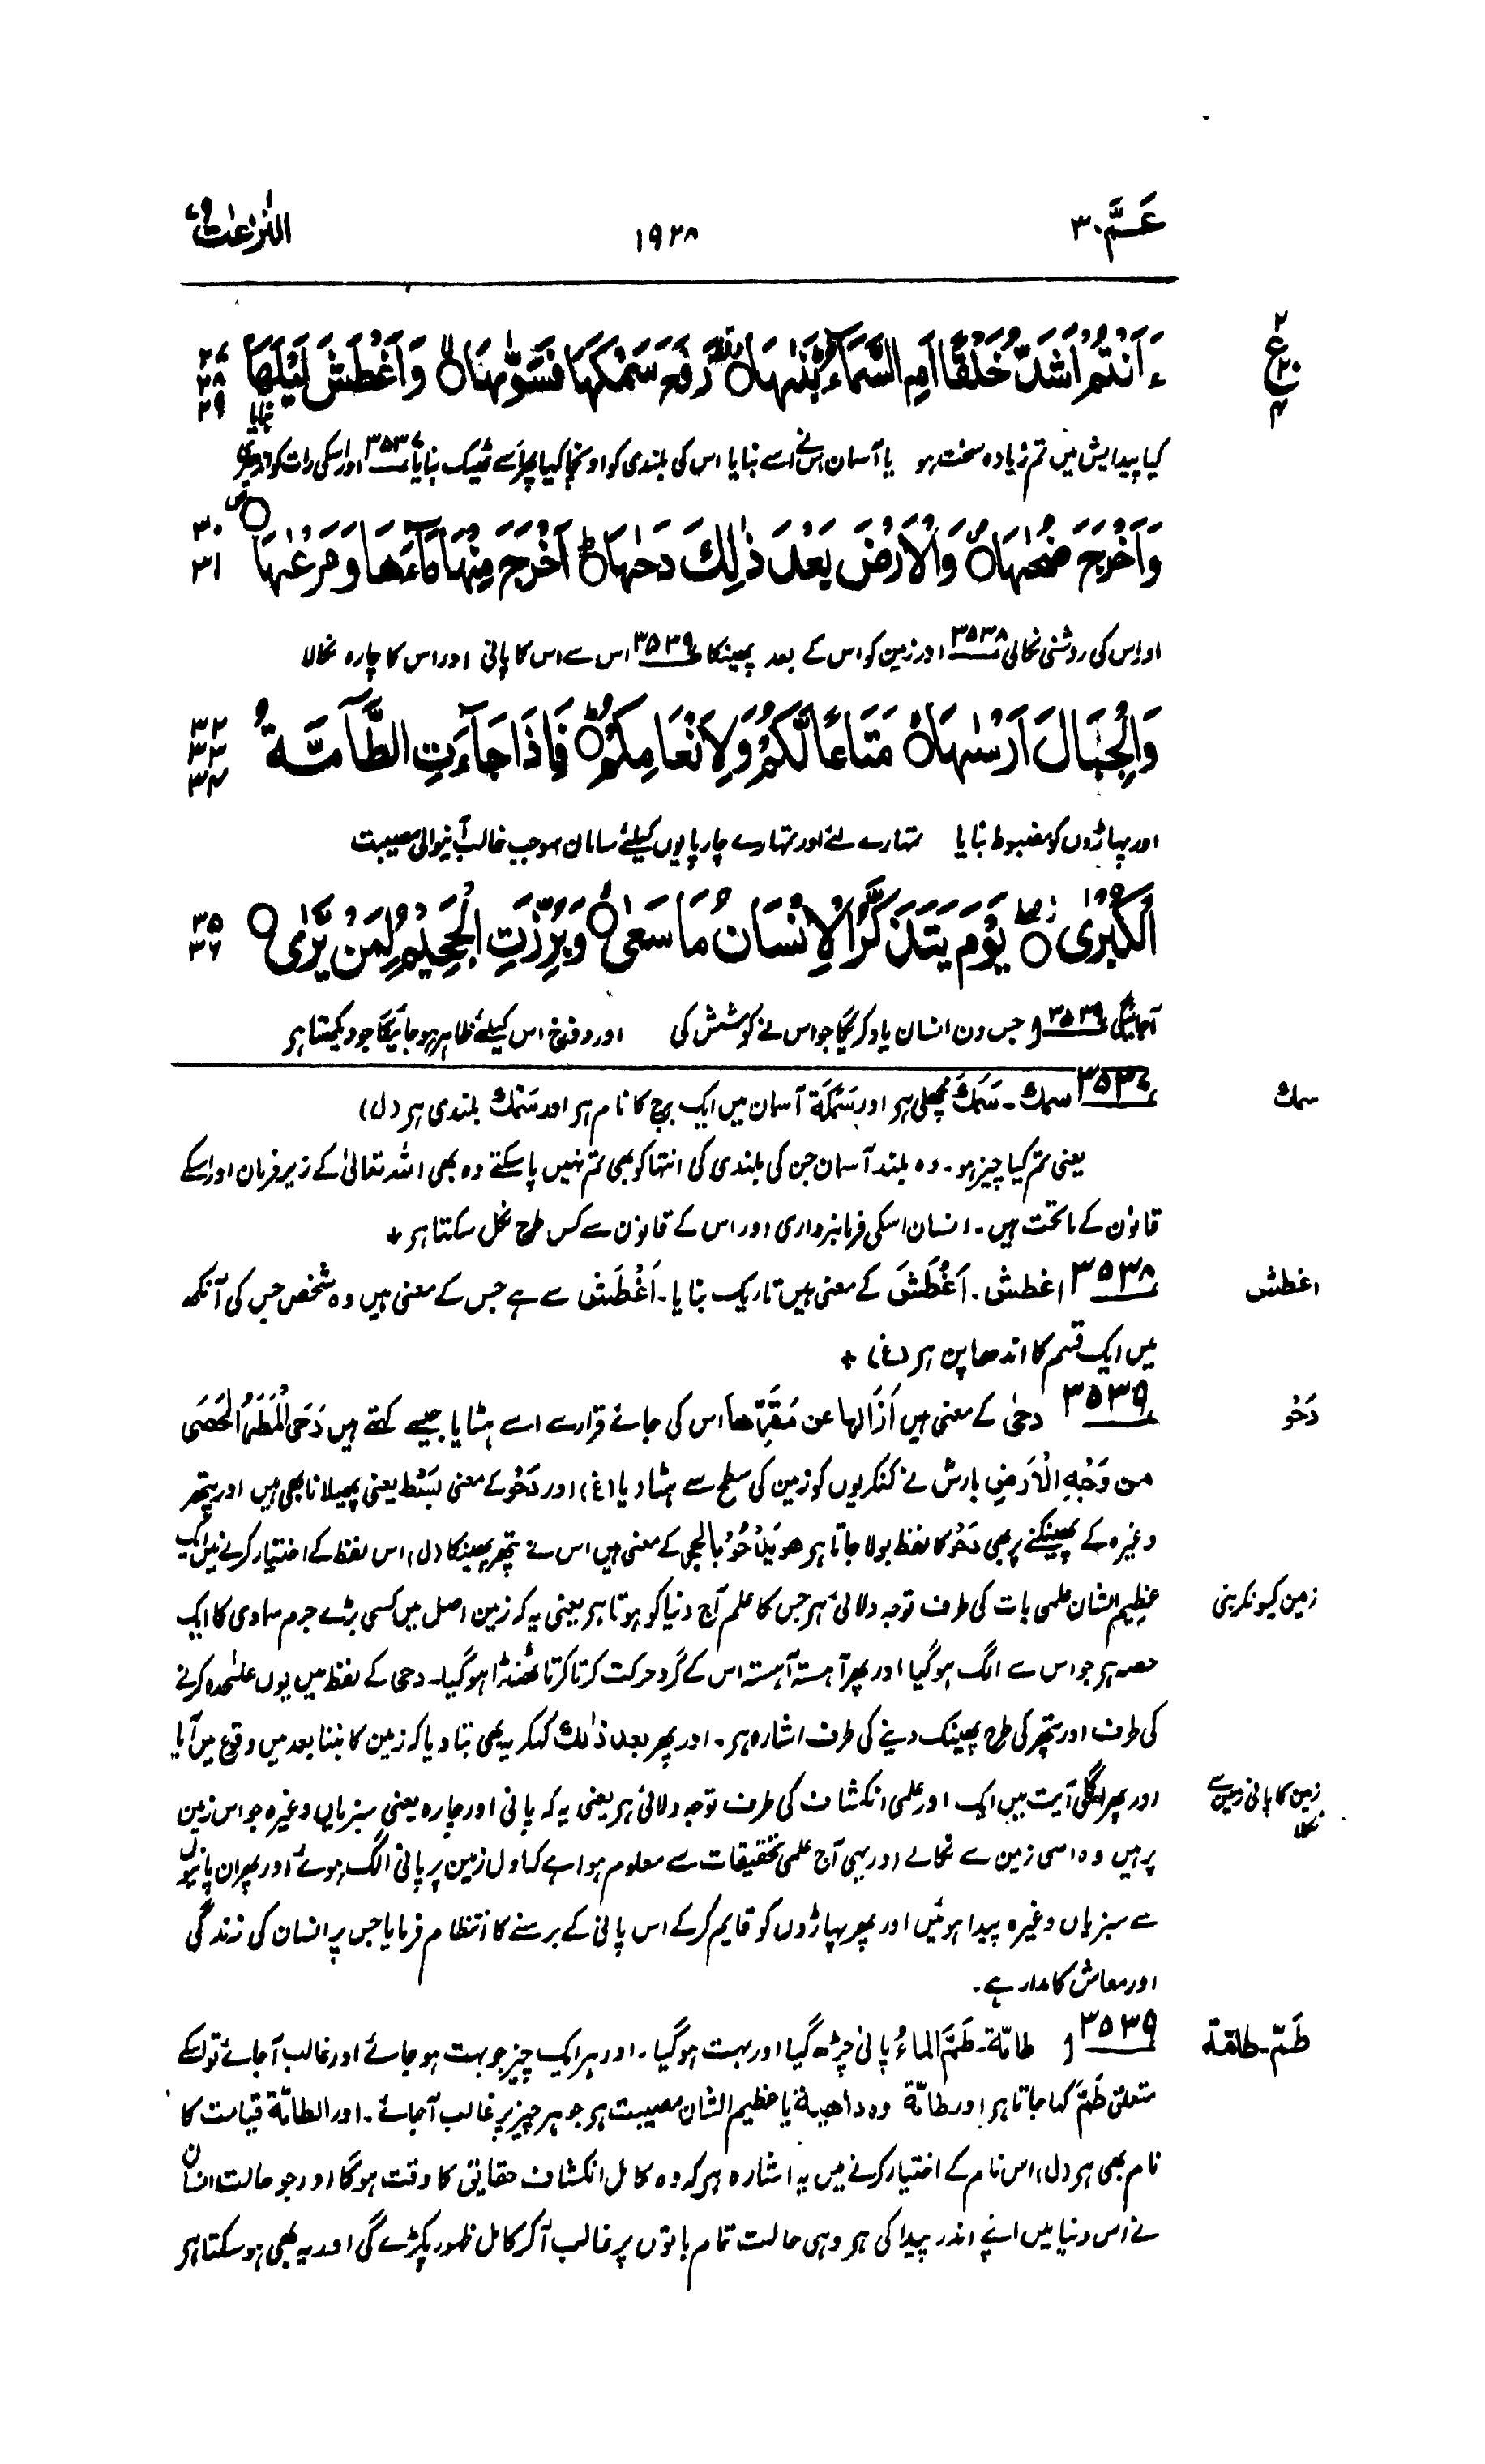 عَمَّ ۳۰
۱۹۲۸
النّٰزعٰت ۷۹
ءَاَنْتُمْ اَشَدُّ خَلْقًا اَمِ السَّمَآءُ بَنٰىهَا رَفَعَ سَمْكَهَا فَسَوّٰىهَا وَاَغْطَشَ لَيْلَهَا
۲۷
۲۸
۲۹
۲
ع
۲۰
۴
کیا پیدایش میں تم زیادہ سخت ہو یا آسمان اس نے اسے بنایا اس کی بلندی کو اونچا کیا پھر اسے ٹھیک بنایا ۳۵۳۷ اور اسکی رات کو اندھیری بنایا
وَاَخْرَجَ ضُحٰىهَا وَالْاَرْضَ بَعْدَ ذٰلِكَ دَحٰىهَا اَخْرَجَ مِنْهَا مَآءَهَا وَمَرْعٰىهَا
۳۰
۳۱
اور اس کی روشنی نکالی ۳۵۳۸ اور زمین کو اس کے بعد پھینکا ۳۵۳۹ اس سے اس کا پانی اور اس کا چارہ نکالا
وَالْجِبَالَ اَرْسٰىهَا مَتَاعًا لَّكُمْ وَلِاَنْعَامِكُمْ فَاِذَا جَآءَتِ الطَّآمَّةُ
۳۲
۳۳
۳۴
اور پہاڑوں کو مضبوط بنایا تمہارے لئے اور تمہارے چارپایوں کیلئے سامان ہو جب غالب آنیوالی مصیبت
الْكُبْرٰى يَوْمَ يَتَذَكَّرُ الْاِنْسَانُ مَا سَعٰى وَبُرِّزَتِ الْجَحِيْمُ لِمَنْ يَّرٰى
۳۵
۳۶
آجائیگی ۳۵۳۹ و جس دن انسان یاد کریگا جو اس نے کوشش کی اور دوزخ اس کیلئے ظاہر ہو جائیگا جو دیکھتا ہر
سمك
۳۵۳۷ سمك۔ سَمَك مچھلی ہر اور سَمَكَة آسمان میں ایک برج کا نام ہر اور سَمْك بلندی ہر (ل)
یعنی تم کیا چیز ہو۔ وہ بلند آسمان جن کی بلندی کی انتہا کو بھی تم نہیں پا سکتے وہ بھی اللہ تعالیٰ کے زیر فرمان اور اسکے
قانون کے ماتحت ہیں۔ انسان اسکی فرمانبرداری اور اس کے قانون سے کس طرح نکل سکتا ہر +
اغطش
۳۵۳۸ اغطش۔ اَغْطَشَ کے معنی ہیں تاریک بنایا۔ اَغْطَش سے ہے جس کے معنی ہیں وہ شخص جس کی آنکھ
میں ایک قسم کا اندھا پن ہر (غ) +
دَحْو
۳۵۳۹ دحیٰ کے معنی ہیں اَزَالها عن مَقَرِّها اس کی جائے قرار سے اسے ہٹایا جیسے کہتے ہیں دَحَى الْمَطَرُ الْحَصَى
من وَجْهِ الْاَرضِ بارش نے کنکریوں کو زمین کی سطح سے ہٹا دیا (غ) اور دَحْو کے معنی بَسْط یعنی پھیلانا بھی ہیں اور پتھر
وغیرہ کے پھینکنے پر بھی دَحْو کا لفظ بولا جاتا ہر هو يَدْحُو بالحجر کے معنی ہیں اس نے پتھر پھینکا (ل) اس لفظ کے اختیار کرنے میں ایک
زمین کیونکر بنی
عظیم الشان علمی بات کی طرف توجہ دلائی ہر جس کا علم آج دنیا کو ہوتا ہر یعنی یہ کہ زمین اصل میں کسی بڑے جرم سماوی کا ایک
حصہ ہر جو اس سے الگ ہو گیا اور پھر آہستہ آہستہ اس کے گرد حرکت کرتا کرتا ٹھنڈا ہو گیا۔ دحی کے لفظ میں یوں علٰحدہ کرنے
کی طرف اور پتھر کی طرح پھینک دینے کی طرف اشارہ ہر۔ اور پھر بعد ذٰلك کہکر یہ بھی بتا دیا کہ زمین کا بننا بعد میں وقوع میں آیا
زمین کا پانی زمین سے نکلا
اور پھر اگلی آیت میں ایک اور علمی انکشاف کی طرف توجہ دلائی ہر یعنی یہ کہ پانی اور چارہ یعنی سبزیاں وغیرہ جو اس زمین
پر ہیں وہ اسی زمین سے نکالے اور یہی آج علمی تحقیقات سے معلوم ہوا ہے کہ اول زمین پر پانی الگ ہوئے اور پھر ان پانیوں
سے سبزیاں وغیرہ پیدا ہوئیں اور پھر پہاڑوں کو قایم کر کے اس پانی کے برسنے کا انتظام فرمایا جس پر انسان کی زندگی
اور معاش کا مدار ہے۔
طَمّ۔ طامّة
۳۵۳۹ و طامّة۔ طَمَّ الماءُ پانی چڑھ گیا اور بہت ہو گیا۔ اور ہر ایک چیز جو بہت ہو جائے اور غالب آجائے تو اسکے
متعلق طَمَّ کہا جاتا ہر اور طامّة وہ داهية یا عظیم الشان مصیبت ہر جو ہر چیز پر غالب آجائے۔ اور الطامّة قیامت کا
نام بھی ہر (ل) اس نام کے اختیار کرنے میں یہ اشارہ ہر کہ وہ کامل انکشاف حقایق کا وقت ہوگا اور جو حالت انسان
نے اس دنیا میں اپنے اندر پیدا کی ہر وہی حالت تمام باتوں پر غالب آکر کامل ظہور پکڑے گی اور یہ بھی ہو سکتا ہر